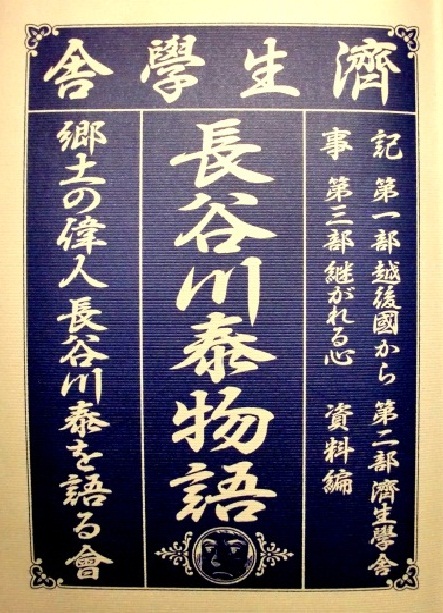 濟生學舍
記 第一部 越後國から 第二部 濟生學舍
事 第三部 継がれる心 資料編
長谷川泰物語
郷土の偉人 長谷川泰を語る會